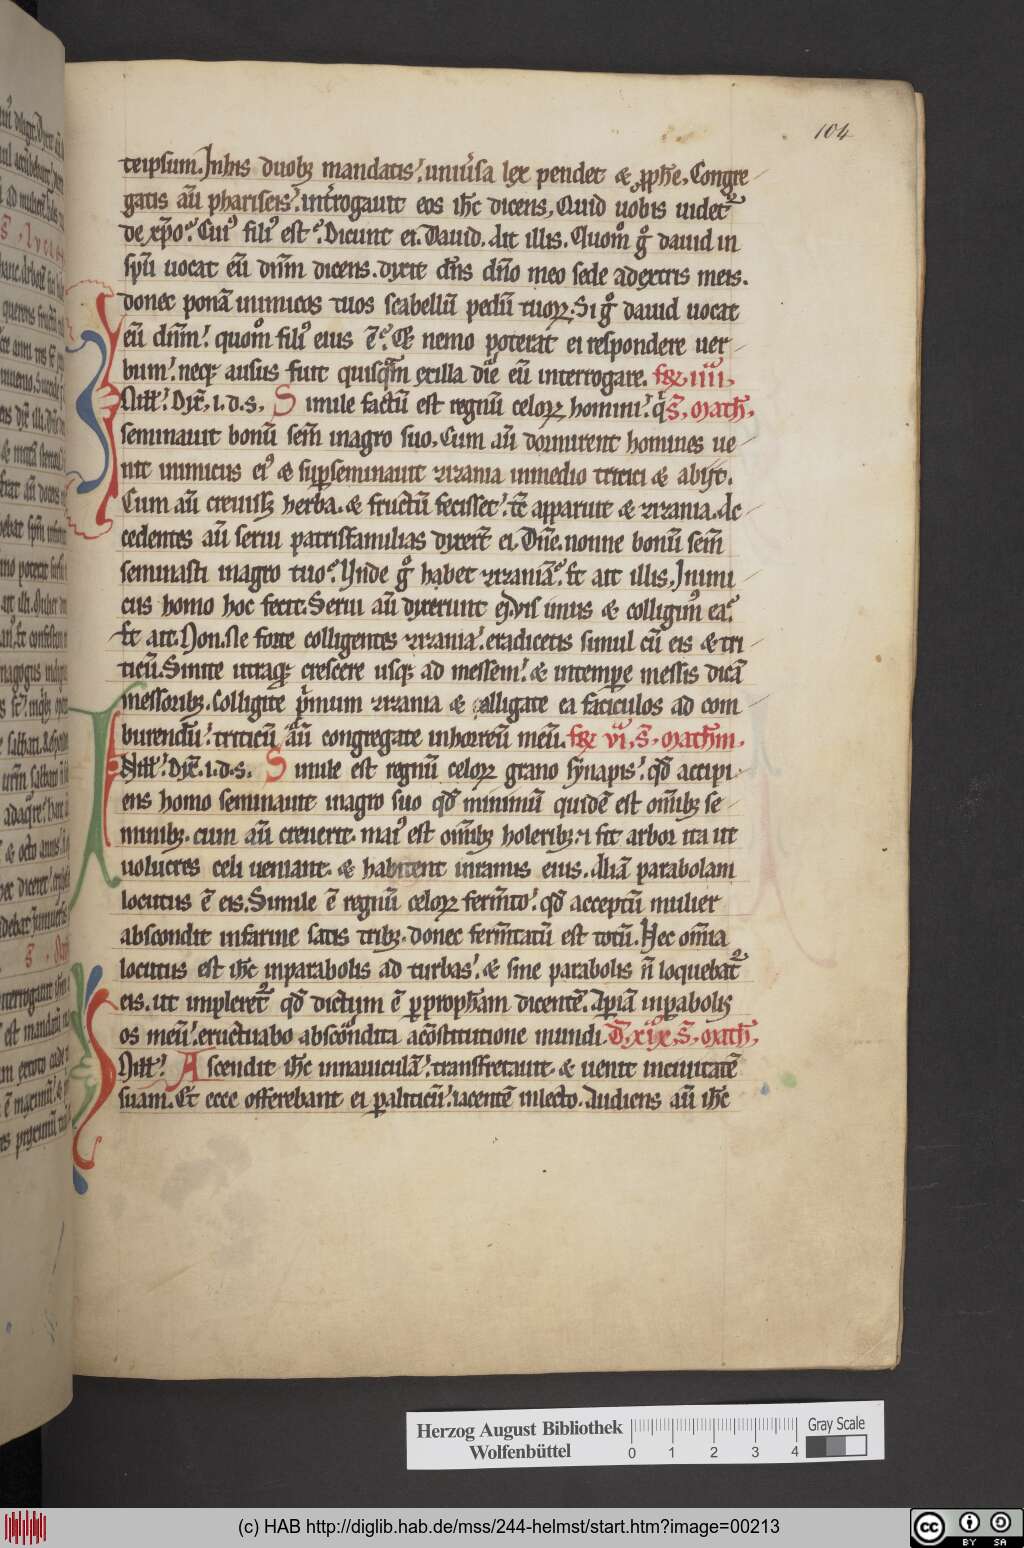 104
teipsum. In his duob; mandatis. uniu̓sa lex pendet & ꝓph̄e. Congre
gatis aū phariseis. int̓rogauit eos ih̄c dicens. Quid uobis uidet᷑
de xp̄o? Cui᷒ fili᷒ est? Dicunt ei. Dauid. Ait illis. Quom̊ gͦ dauid in
sp̄u uocat eū dn̄m dicens. dixit dn̄s dn̄o meo sede adextris meis.
donec ponā inimicos tuos scabellū pedū tuoꝝ. Si gͦ dauid uocat
eū dn̄m. quom̊ fili᷒ eius ē? Et nemo poterat ei respondere uer
bum. neqꝫ ausus fuit quisqᷓm exilla die eū interrogare. fꝝ. iiii.
N ill̄. Dix̄. i. d. s. Simile factū est regnū celoꝝ homini. qͥ S. Math̄.
seminauit bonū sem̄ inagro suo. Cum aū dormirent homines ue
nit inimicus ei᷒ & suꝑseminauit zizania inmedio tritici & abijt.
Cum aū creuiss; herba. & fructū fecisset. tc̄ apparuit & zizania. Ac
cedentes aū serui patrisfamilias dixer̄t ei. Dn̄e. nonne bonū sem̄
seminasti inagro tuo? Vnde gͦ habet zizaniā? Et ait illis. Inimi
cus homo hoc fecit. Serui aū dixerunt ei. Vis imus & colligim᷒ ea?
Et ait. Non. Ne forte colligentes zizania. eradicetis simul cū eis & tri
ticū. Sinite utraqꝫ crescere usqꝫ ad messem. & intempe messis dicā
messorib;. Colligite pͥmum zizania & alligate ea faciculos ad com
burendū. triticū aū congregate inhorreū meū. fꝝ vi. S. Mathm̄.
N ill̄. Dix̄. i. d. s. Simile est regnū celoꝝ grano synapis. qd̄ accipi
ens homo seminauit inagro suo qd̄ minimū quidē est om̄ib; se
minib;. cum aū creuerit. mai᷒ est om̄ib; holerib; ⁊ fit arbor ita ut
uolucres celi ueniant. & habitent inramis eius. Aliā parabolam
locutus ē eis. Simile ē regnū celoꝝ ferm̄to. qd̄ acceptū mulier
abscondit infarine satis trib;. donec ferm̄tatū est totū. Hec om̄ia
locutus est ih̄c inparabolis ad turbas. & sine parabolis n̄ loquebat᷑
eis. ut impleret᷑ qd̄ dictum ē ꝑ proph̄am dicentē. Apiā inꝑabolis
os meū. eructuabo abscōndita acōstitutione mundi. D̄. xix. S. Math̄.
N ill̄. Ascendit ih̄c innauiculā. transfretauit. & uenit inciuitatē
suam. Et ecce offerebant ei ꝑaliticū. iacentē inlecto. Audiens aū ih̄c
Herzog August Bibliothek
Wolfenbüttel
0 1 2 3 4
Gray Scale
(c) HAB http://diglib.hab.de/mss/244-helmst/start.htm?image=00213
cc BY SA